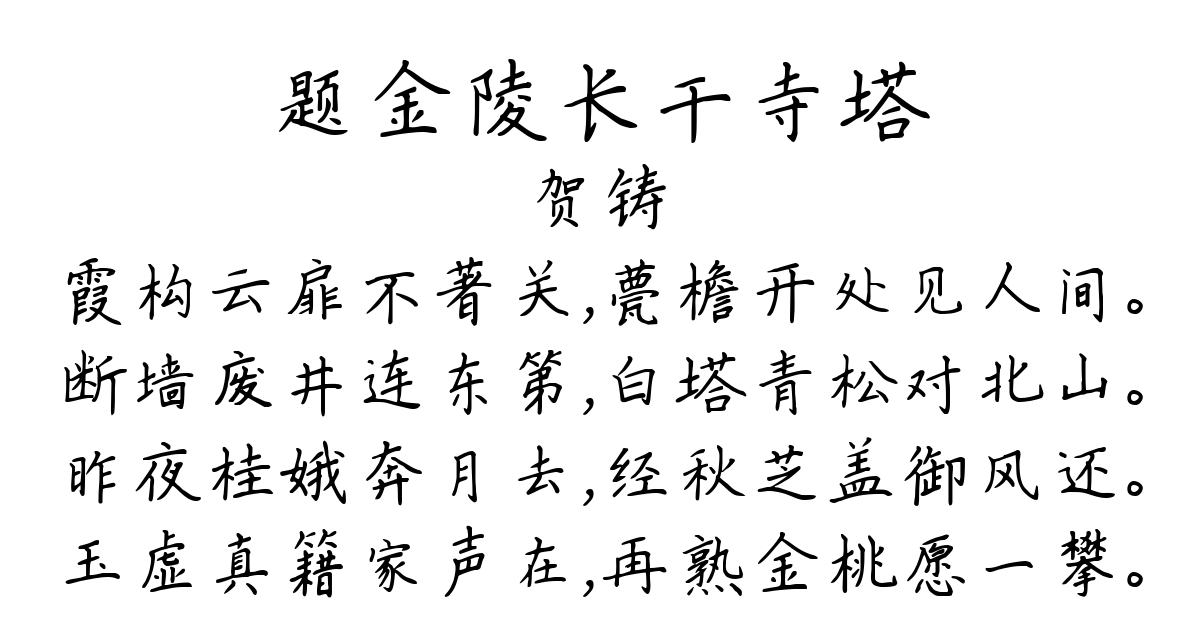 题金陵长干寺塔
贺铸
霞构云扉不著关,甍檐开处见人间。
断墙废井连东第,白塔青松对北山。
昨夜桂娥奔月去,经秋芝盖御风还。
玉虚真籍家声在,再熟金桃愿一攀。